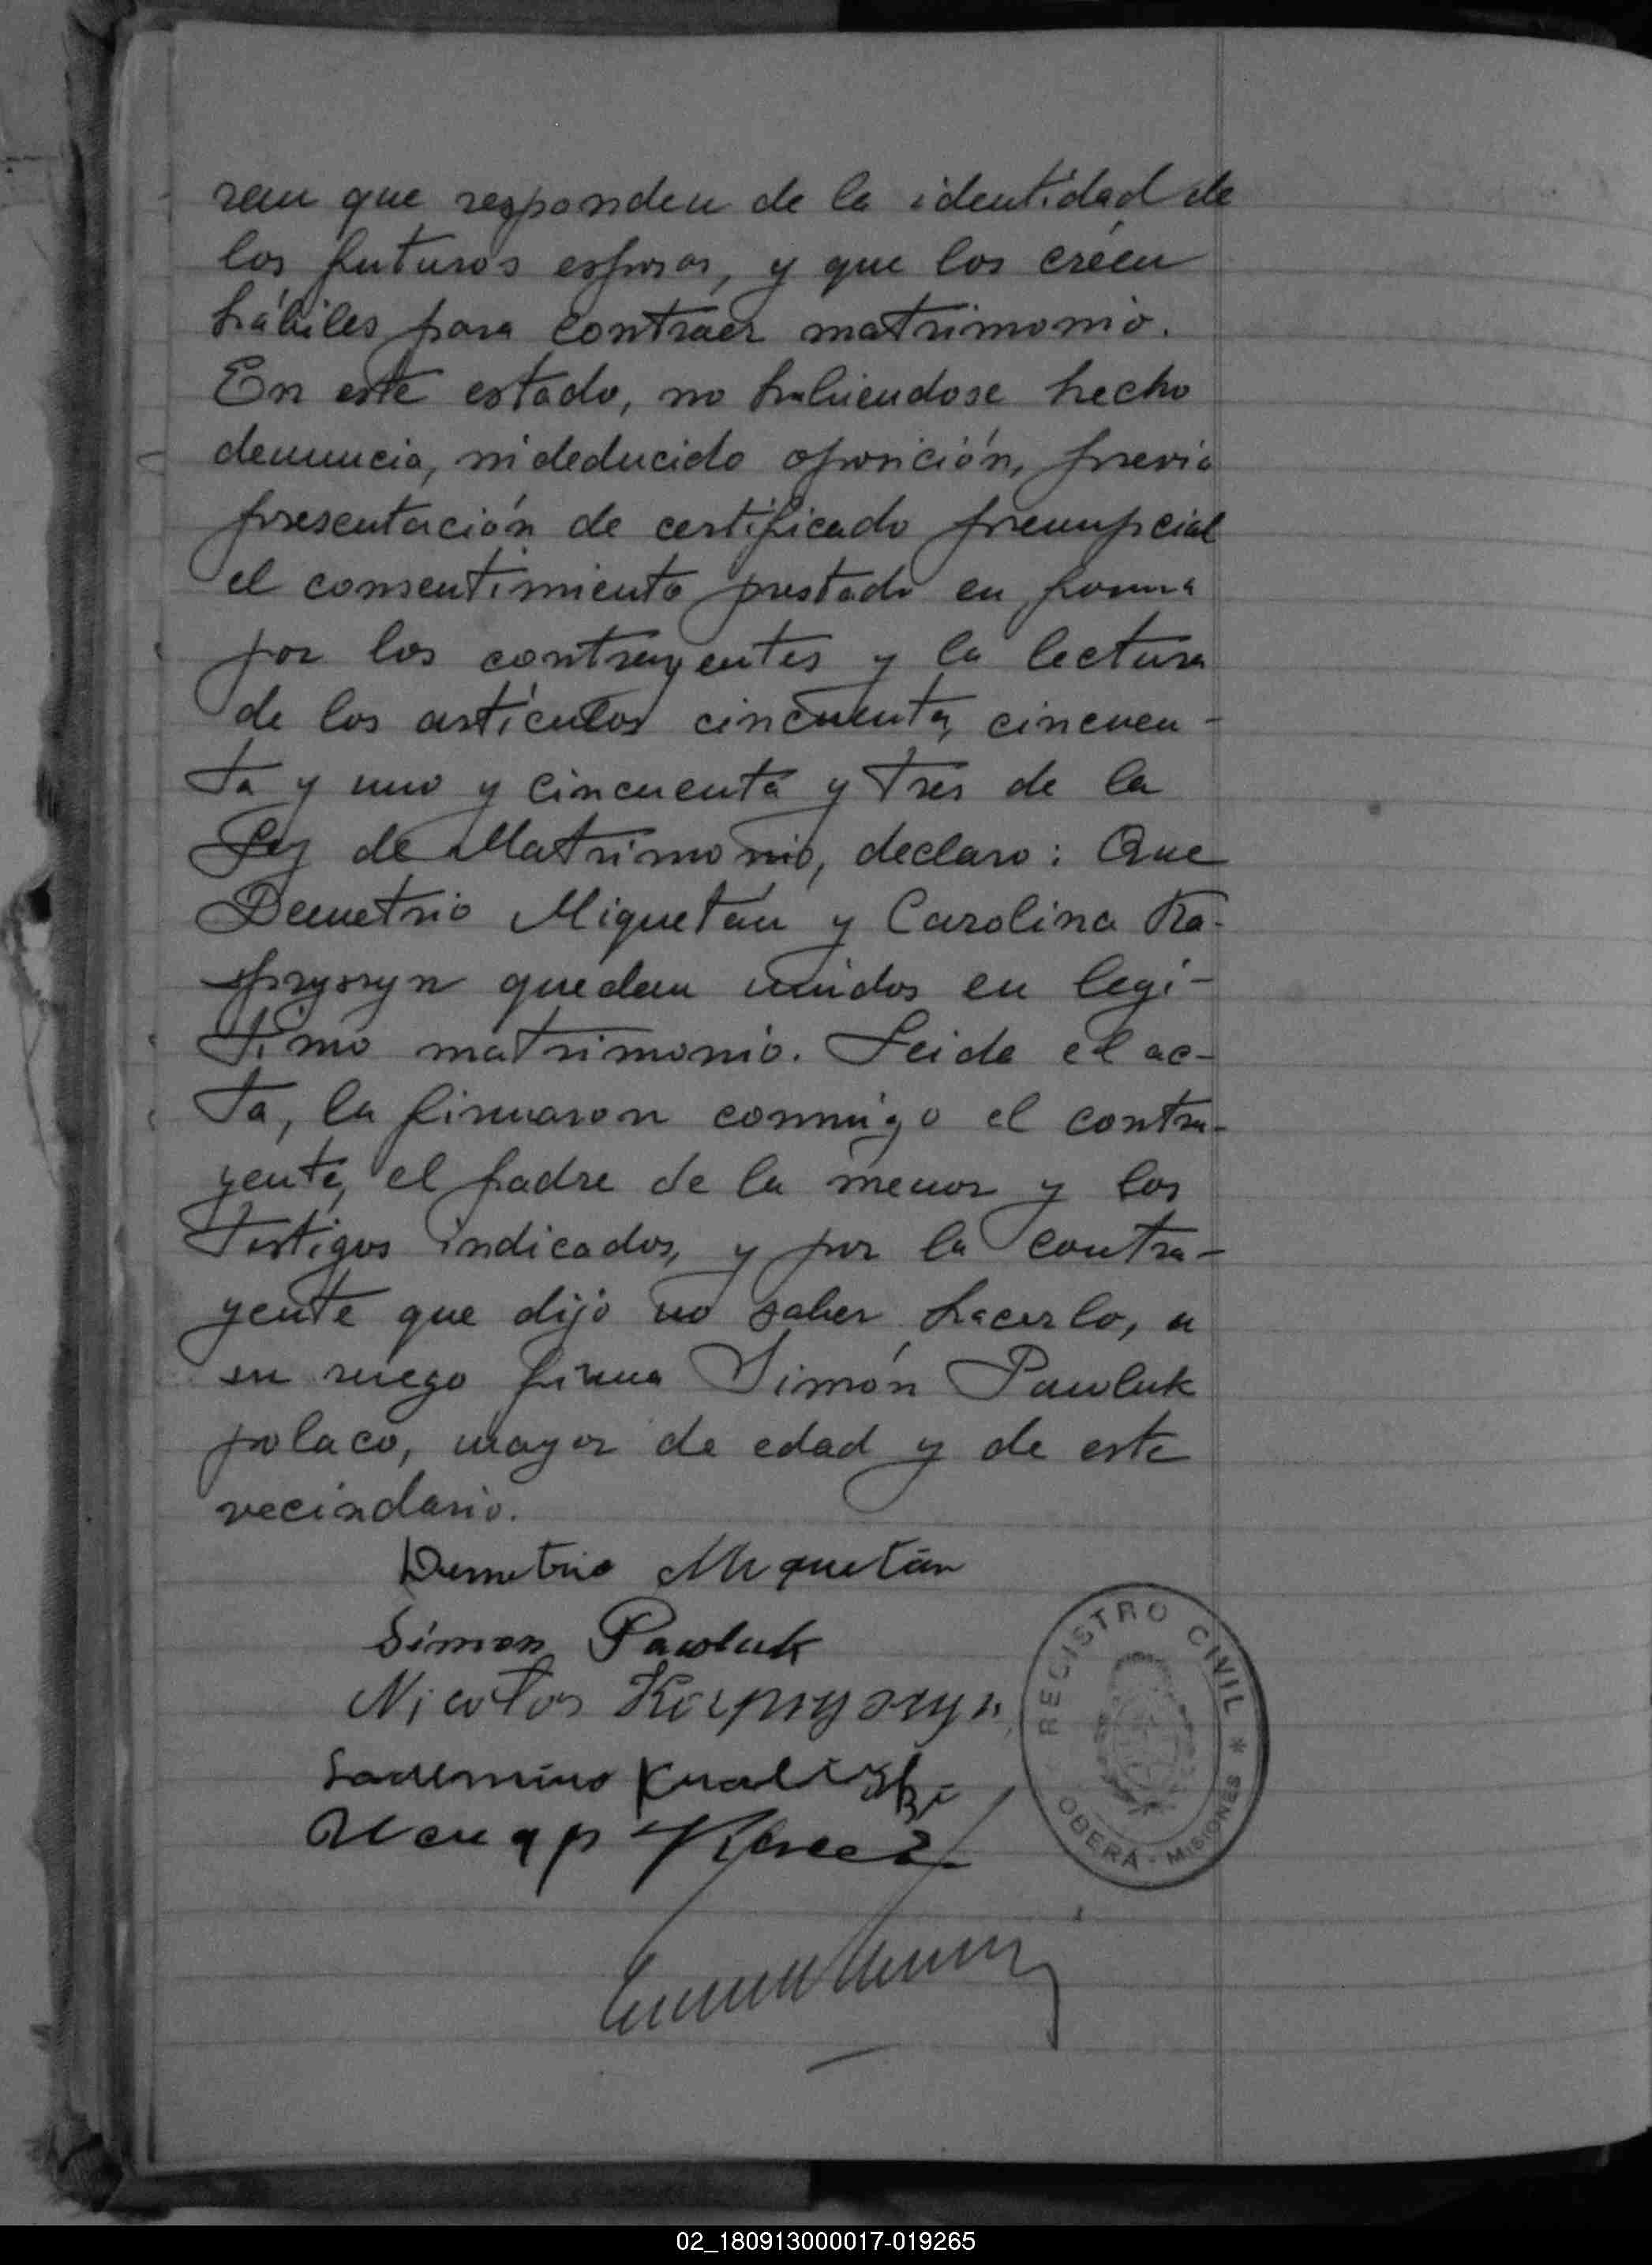 ran que responden de la identidad de
los futuros esposos, y que los créen
hábiles para contraer matrimonio.
En este estado, no habiendose hecho
denuncia, ni deducido oposición, previa
presentación de certificado prenupcial
el consentimiento prestado en forma
por los contrayentes y la lectura
de los artículos cincuenta, cincuen-
ta y uno y cincuenta y tres de la
Ley de Matrimonio, declaro: Que
Demetrio Miquetán y Carolina Ka-
prysryn quedan unidos en legí-
timo matrimonio. Leida el ac-
ta, la firmaron conmigo el contra-
yente, el padre de la menor y los
testigos indicados, y por la contra-
yente que dijo no saber hacerlo, a
su ruego firma Simón Pawluk
polaco, mayor de edad y de este
vecindario.
Demetrio Miquetán
Simon Pawluk
Nicolas
REGISTRO CIVIL * OBERÁ - MISIONES
02_180913000017-019265